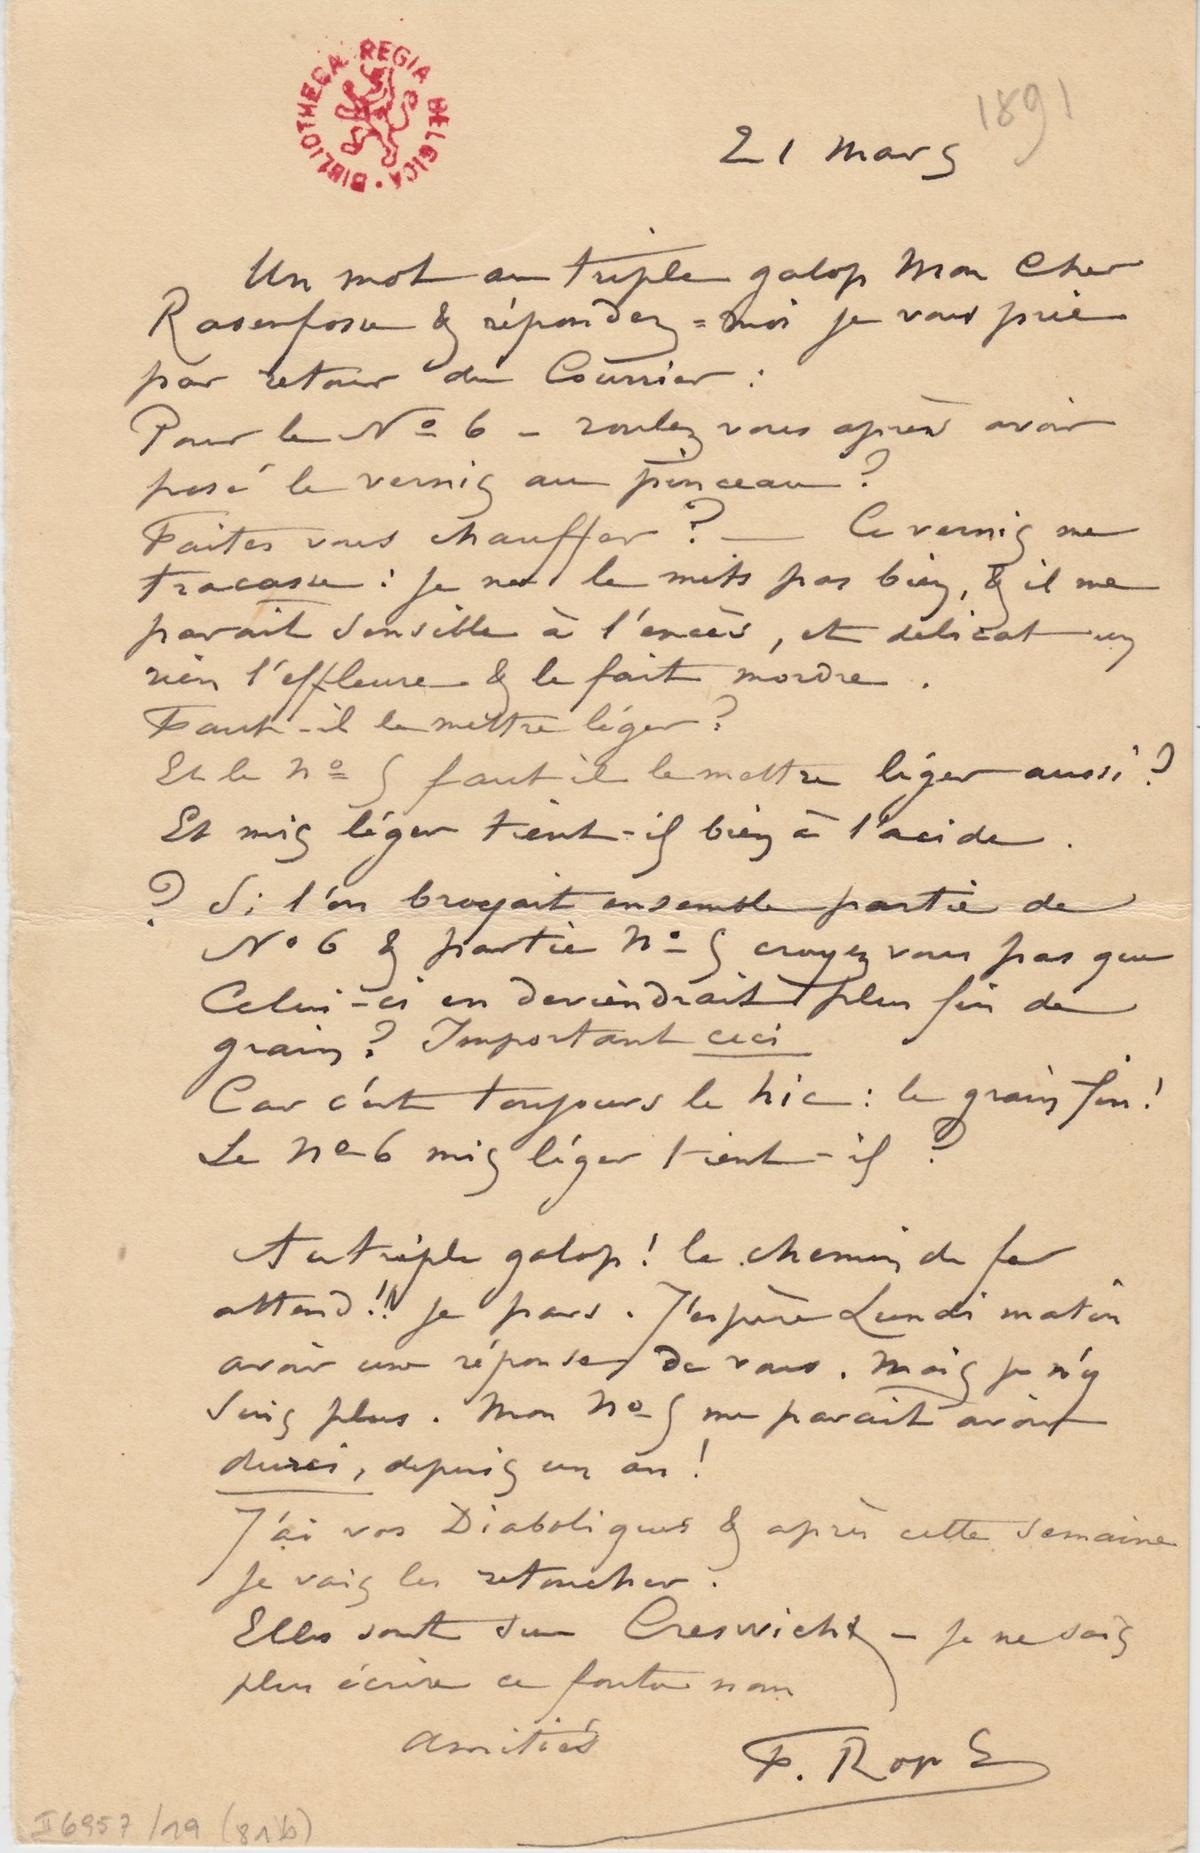 BIBLIOTHECA REGIA BELGICA
1891
21 Mars
Un mot au triple galop Mon Cher
Rassenfosse & répondez=moi je vous prie
par retour du Courrier :
Pour le No 6 – roulez vous après avoir
posé le vernis au pinceau ?
Faites vous chauffer ? — Ce vernis me
tracasse : je ne le mets pas bien, & il me
parait sensible à l'excès, et delicat un
rien l'effleure & le fait mordre .
Faut-il le mettre léger ?
Et le no 5 faut il le mettre léger aussi ?
Et mis léger tient-il bien à l'acide .
? Si l'on broyait ensemble partie de
No 6 & partie no 5 croyez vous pas que
Celui-ci en deviendrait plus fin de
grain ? Important ceci
Car c'est toujours le hic : le grain fin !
Le no 6 mis léger tient-il ?
Au triple galop ! le chemin de fer
attend !! je pars . J'espère Lundi matin
avoir une réponse de vous . Mais je n'y
suis plus . Mon no 5 me parait avoir
durci, depuis un an !
J'ai vos Diaboliques & après cette semaine
je vais les retoucher .
Elles sont sur – je ne sais
plus écrire ce foutu nom
Amitiés
F. Rops
II 6957 /19 (81b)